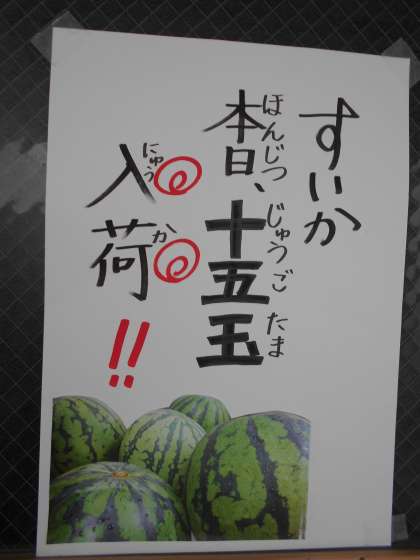 すいか
本日、十五玉
ほんじつ じゅうご たま
入荷
にゅう か
!!